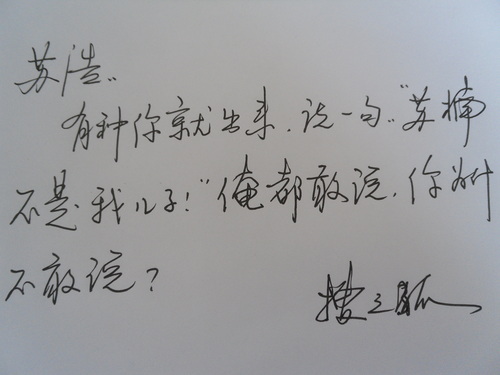 苏浩:
有种你就出来,说一句:"苏楠
不是我儿子!"俺都敢说,你为什
不敢说?